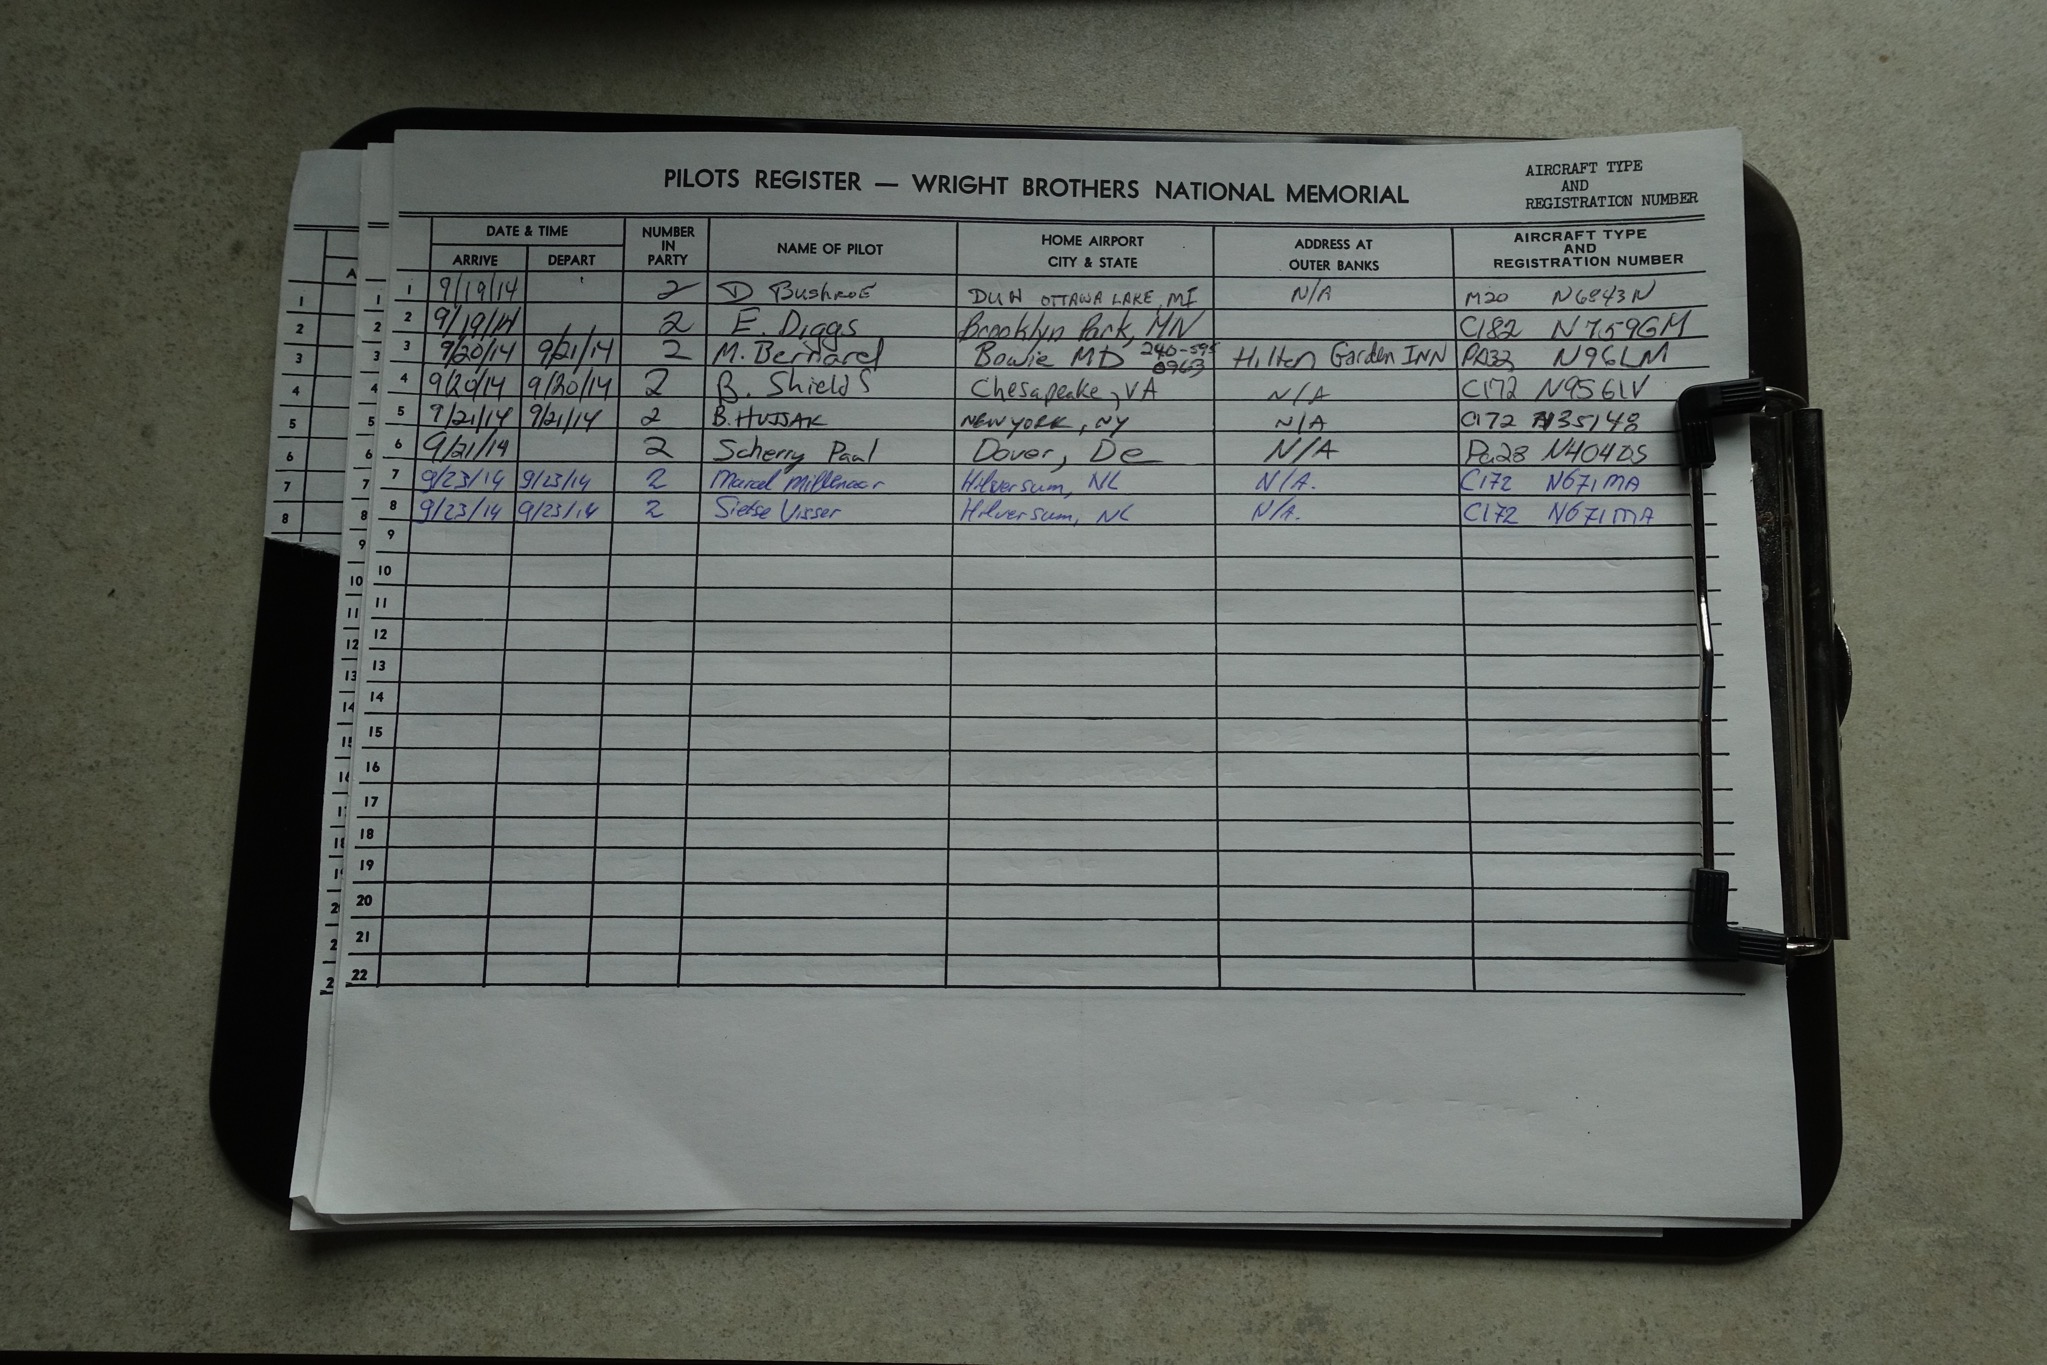 PILOTS REGISTER — WRIGHT BROTHERS NATIONAL MEMORIAL
AIRCRAFT TYPE
AND
REGISTRATION NUMBER
DATE & TIME
ARRIVE DEPART
NUMBER
IN
PARTY
NAME OF PILOT
HOME AIRPORT
CITY & STATE
ADDRESS AT
OUTER BANKS
AIRCRAFT TYPE
AND
REGISTRATION NUMBER
1 9/19/14 2 D Bushroe DUH OTTAWA LAKE, MI N/A M20 N6843N
2 9/19/14 2 E. Diggs Brooklyn Park, MN C182 N759GM
3 9/20/14 9/21/14 2 M. Bernard Bowie MD 240-595 0963 Hilton Garden INN PA32 N96LM
4 9/20/14 9/20/14 2 B. Shields Chesapeake, VA N/A C172 N9561V
5 9/21/14 9/21/14 2 NEW YORK, NY N/A C172 N35148
6 9/21/14 2 Scherry Paul Dover, De N/A Pa28 N404DS
7 9/23/14 9/23/14 2 Marcel Millenaar Hilversum, NL N/A. C172 N671MA
8 9/23/14 9/23/14 2 Sietse Visser Hilversum, NL N/A. C172 N671MA
9
10
11
12
13
14
15
16
17
18
19
20
21
22